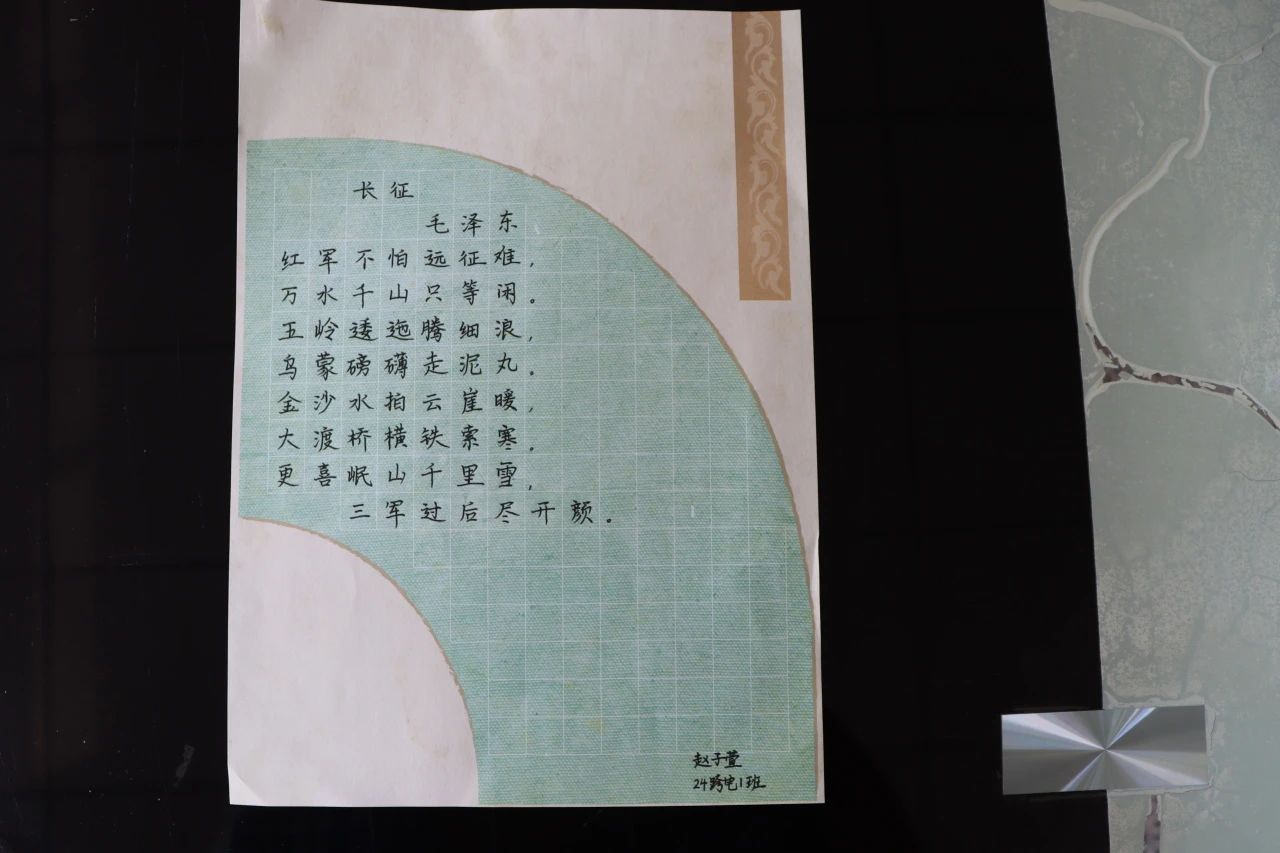 长征
毛泽东
红军不怕远征难，
万水千山只等闲。
五岭逶迤腾细浪，
乌蒙磅礴走泥丸。
金沙水拍云崖暖，
大渡桥横铁索寒。
更喜岷山千里雪，
三军过后尽开颜。
赵子萱
24跨电1班